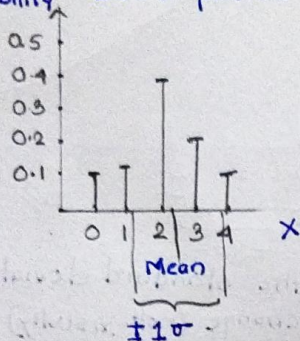 0.5
0.4
0.3
0.2
0.1
0 1 2 3 4 X
Mean
±1σ